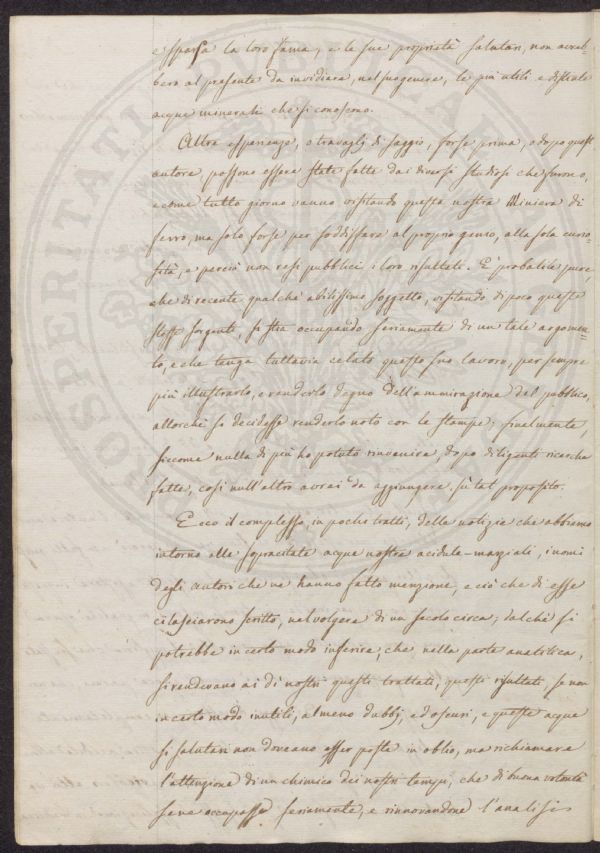 e sparsa la loro fama, e le sue proprietà salutari, non avreb-
bero al presente da invidiare, nel suo genere, le più utili e distinte
acque minerali che si conoscono.
Altre esperienze, o travagli di saggio, forse prima, o dopo questi
autore, possono essere state fatte dai diversi studiosi che furono,
e come tutto giorno vanno visitando questa nostra Miniera di
ferro, ma solo forse per soddisfare al proprio genio, alla sola curio-
sità, e perciò non resi pubblici i loro risultati. È probabile pure,
che di recente qualche abilissimo soggetto, visitando di poco queste
stesse sorgenti, si stia occupando seriamente di un tale argomen-
to, e che tenga tuttavia celato questo suo lavoro, per sempre
più illustrarlo, e renderlo degno dell'ammirazione del pubblico,
allorchè si decidesse renderlo noto con le stampe; finalmente,
siccome nulla di più ho potuto rinvenire, dopo diligenti ricerche
fatte, così null'altro avrei da aggiungere, sù tal proposito.
Ecco il complesso, in pochi tratti, delle notizie che abbiamo
intorno alle sopracitate acque nostre acidule-marziali, i nomi
degli autori che ne hanno fatto menzione, e ciò che di esse
ci lasciarono scritto, nel volgere di un secolo circa; dalchè si
potrebbe in certo modo inferire, che nella parte analitica,
si rendevano ai dì nostri questi trattati, questi risultati, se non
in certo modo inutili, almeno dubbj, ed oscuri, e queste acque
sì salutari non doveano esser poste in oblio, ma richiamare
l'attenzione di un chimico dei nostri tempi, che di buona volontà
se ne occupasse seriamente, e rinnovandone l'analisi
PROSPERITATI PUBLICAE